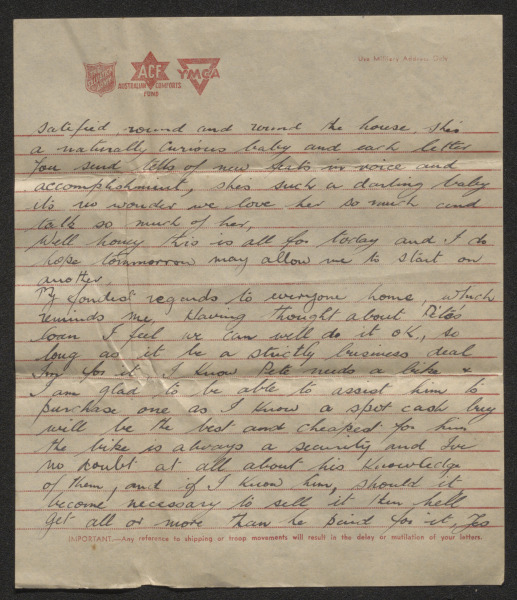 THE SALVATION ARMY
ACF
AUSTRALIAN COMFORTS FUND
YMCA
Use Military Address Only
satisfied round and round the house, shis
a naturally curious baby and each letter
you send tells of new feats in voice and
accomplishment, shes such a darling baby
its no wonder we love her so much and
talk so much of her,
Well honey this is all for today and I do
hope tommorrow may allow me to start on
another.
My fondest regards to everyone home, which
reminds me, Having thought about Pete's
loan I feel we can well do it ok., so
long as it be a strictly business deal
Im for it, I know Pete needs a bike &
I am glad to be able to assist him to
purchase one as I know a spot cash buy
will be the best and cheapest for him
the bike is always a security and Ive
no doubt at all about his knowledge
of them, and if I know him, should it
become necessary to sell it then hell
get all or more than he paid for it, Yes
IMPORTANT.—Any reference to shipping or troop movements will result in the delay or mutilation of your letters.